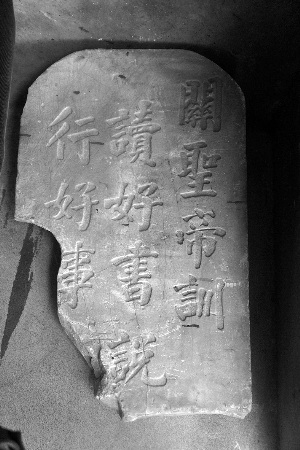 關聖帝訓
讀好書說
行好事